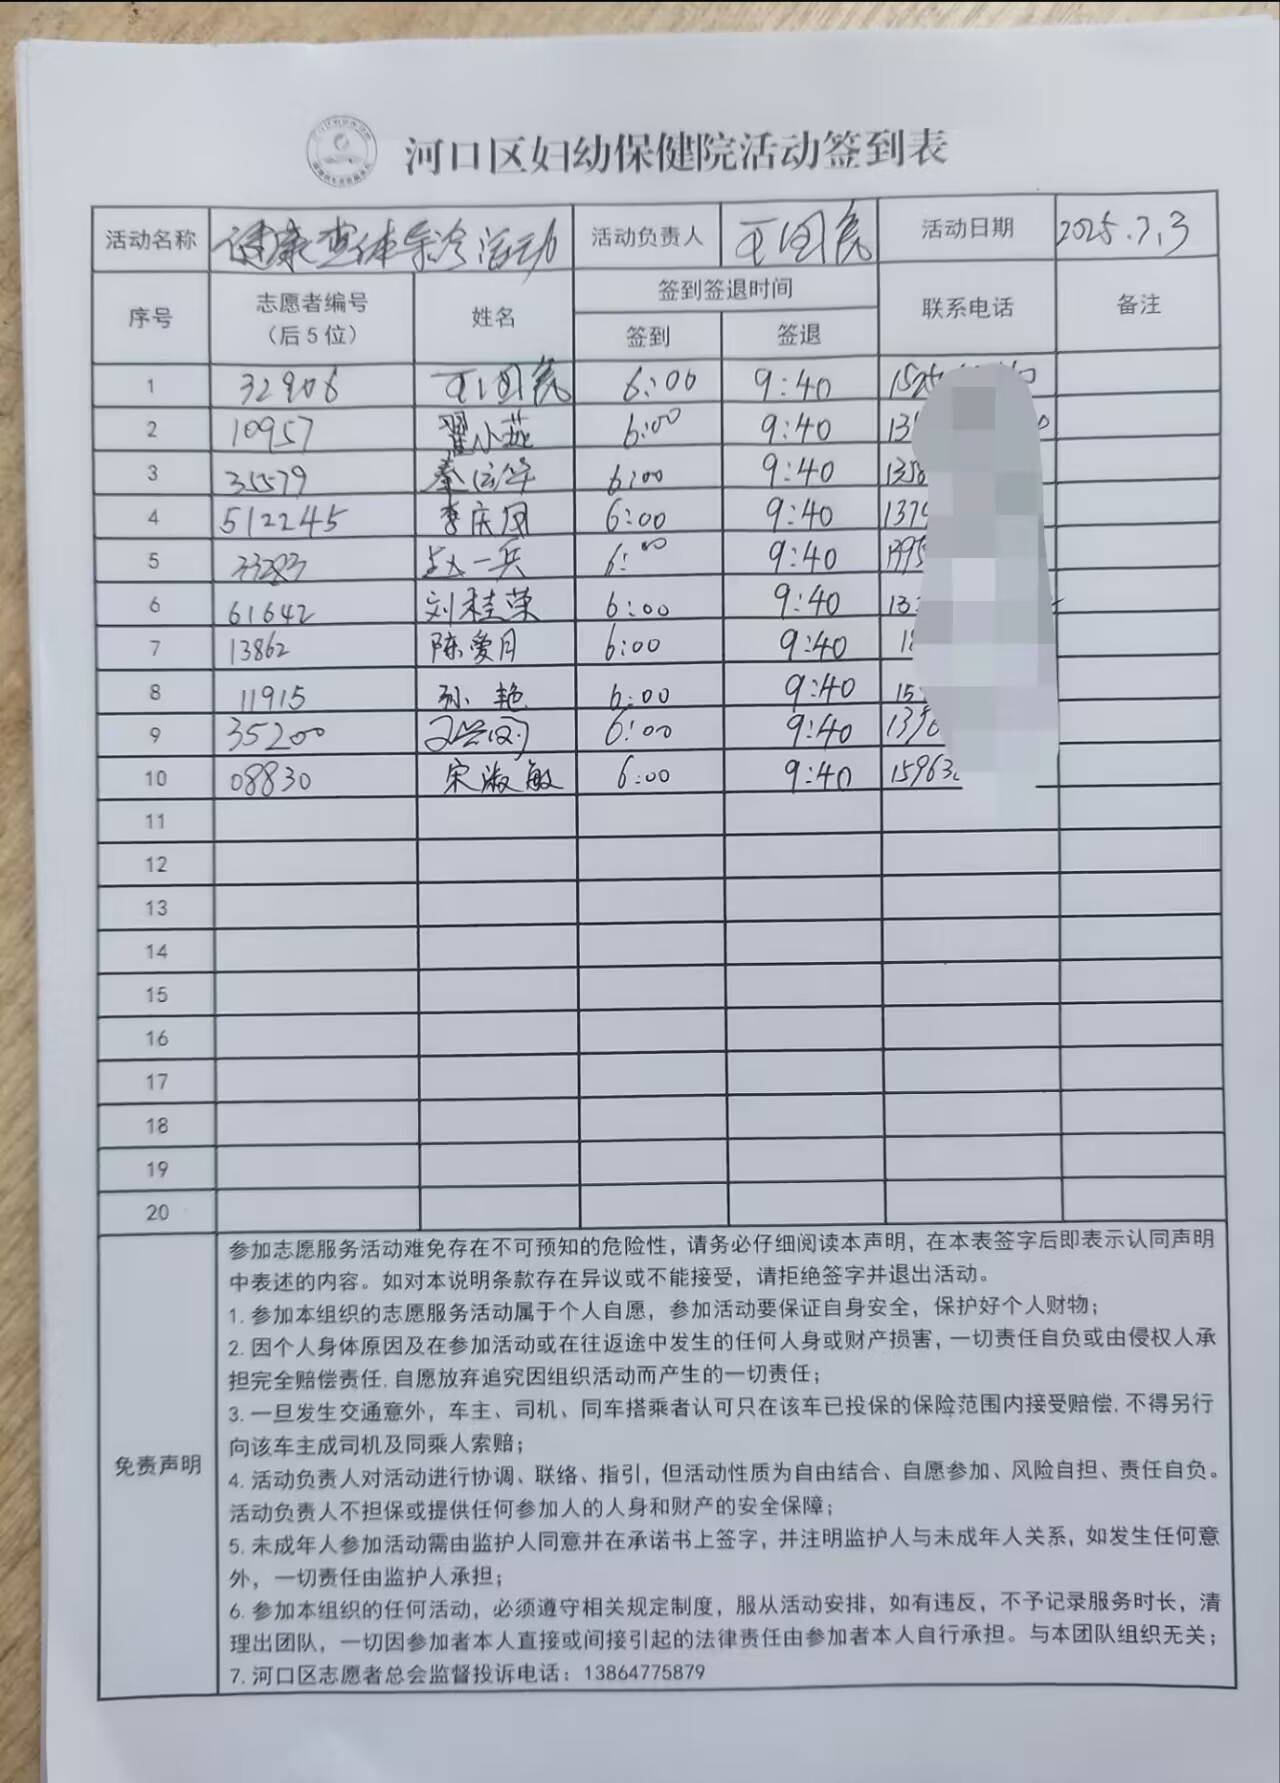 河口区妇幼保健院活动签到表
活动名称 健康查体导诊活动 活动负责人 王国亮 活动日期 2025.7.3
序号 志愿者编号（后5位） 姓名 签到签退时间 联系电话 备注
签到 签退
1 32906 王国亮 6:00 9:40
2 10957 翟小燕 6:00 9:40
3 35579 秦 华 6:00 9:40
4 512245 李庆凤 6:00 9:40
5 33283 赵一兵 6:00 9:40
6 61642 刘桂荣 6:00 9:40
7 13862 陈爱月 6:00 9:40
8 11915 孙艳 6:00 9:40
9 35200 6:00 9:40
10 08830 宋淑敏 6:00 9:40
11
12
13
14
15
16
17
18
19
20
免责声明
参加志愿服务活动难免存在不可预知的危险性，请务必仔细阅读本声明，在本表签字后即表示认同声明
中表述的内容。如对本说明条款存在异议或不能接受，请拒绝签字并退出活动。
1. 参加本组织的志愿服务活动属于个人自愿，参加活动要保证自身安全，保护好个人财物；
2. 因个人身体原因及在参加活动或在往返途中发生的任何人身或财产损害，一切责任自负或由侵权人承
担完全赔偿责任. 自愿放弃追究因组织活动而产生的一切责任；
3. 一旦发生交通意外，车主、司机、同车搭乘者认可只在该车已投保的保险范围内接受赔偿. 不得另行
向该车主成司机及同乘人索赔；
4. 活动负责人对活动进行协调、联络、指引，但活动性质为自由结合、自愿参加、风险自担、责任自负。
活动负责人不担保或提供任何参加人的人身和财产的安全保障；
5. 未成年人参加活动需由监护人同意并在承诺书上签字，并注明监护人与未成年人关系，如发生任何意
外，一切责任由监护人承担；
6. 参加本组织的任何活动，必须遵守相关规定制度，服从活动安排，如有违反，不予记录服务时长，清
理出团队，一切因参加者本人直接或间接引起的法律责任由参加者本人自行承担。与本团队组织无关；
7. 河口区志愿者总会监督投诉电话：13864775879